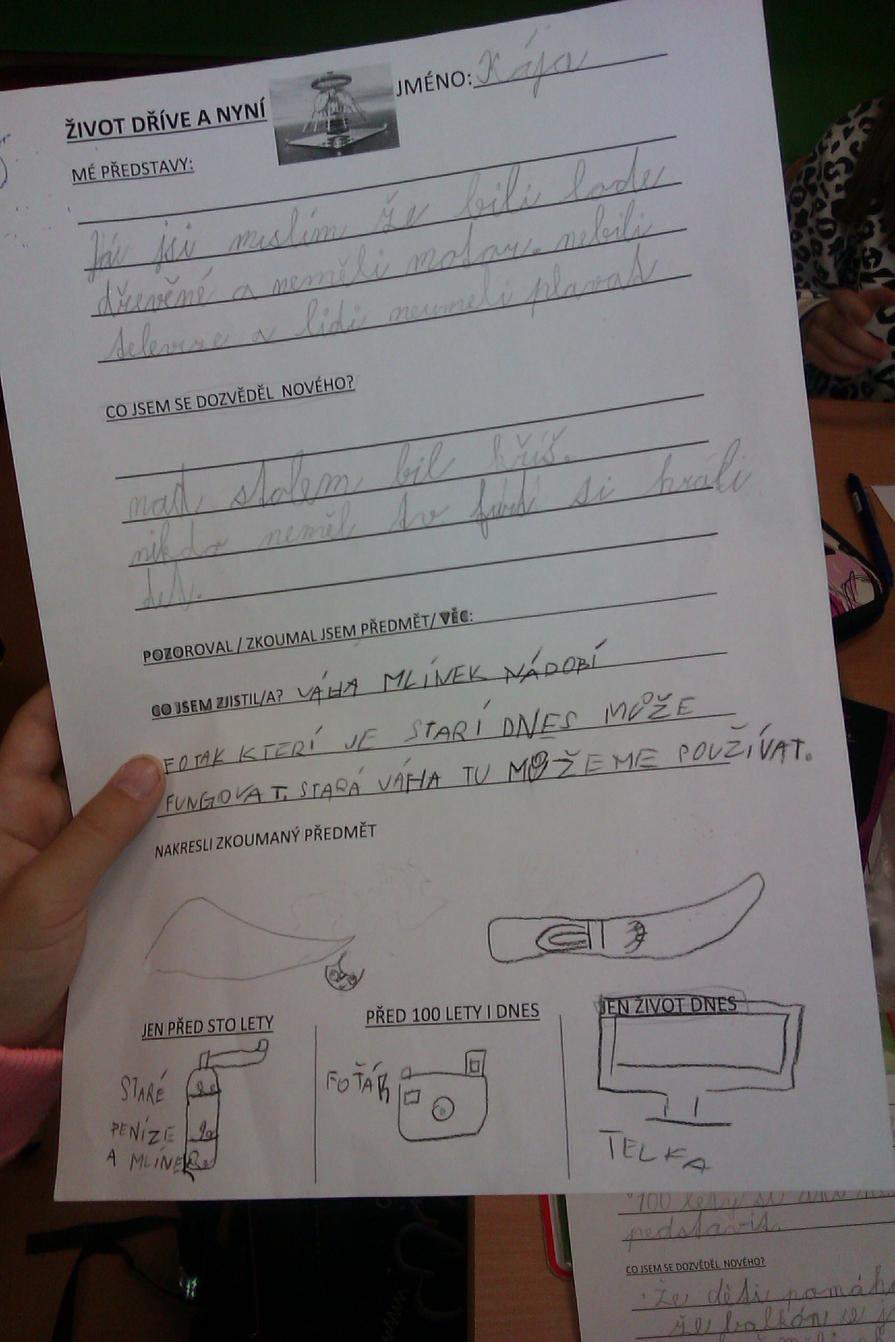 ŽIVOT DŘÍVE A NYNÍ
JMÉNO: Kája
MÉ PŘEDSTAVY:
Já jsi mislím že bili lode
dřevěné a neměli motor. nebili
televize a lidi neumeli plavat
CO JSEM SE DOZVĚDĚL NOVÉHO?
nad stolem bil kříš.
nikdo neměl tv furt si hráli
POZOROVAL / ZKOUMAL JSEM PŘEDMĚT/ VĚC:
CO JSEM ZJISTIL/A? VÁHA MLÍNEK NÁDOBÍ
FOTAK KTERÍ JE STARÍ DNES MŮŽE
FUNGOVAT. STARÁ VÁHA TU MŮŽEME POUŽÍVAT.
NAKRESLI ZKOUMANÝ PŘEDMĚT
JEN PŘED STO LETY
STARÉ
PENÍZE
A MLÍNEK
PŘED 100 LETY I DNES
FOŤÁK
JEN ŽIVOT DNES
TELKA
100 lety si
pedstavit.
CO JSEM SE DOZVĚDĚL NOVÉHO?
že děti pomáh
že balkón se